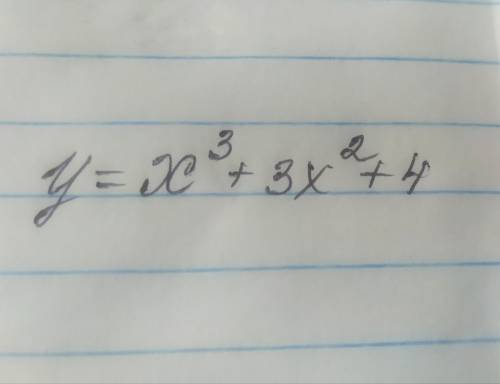 y = x³ + 3x² + 4